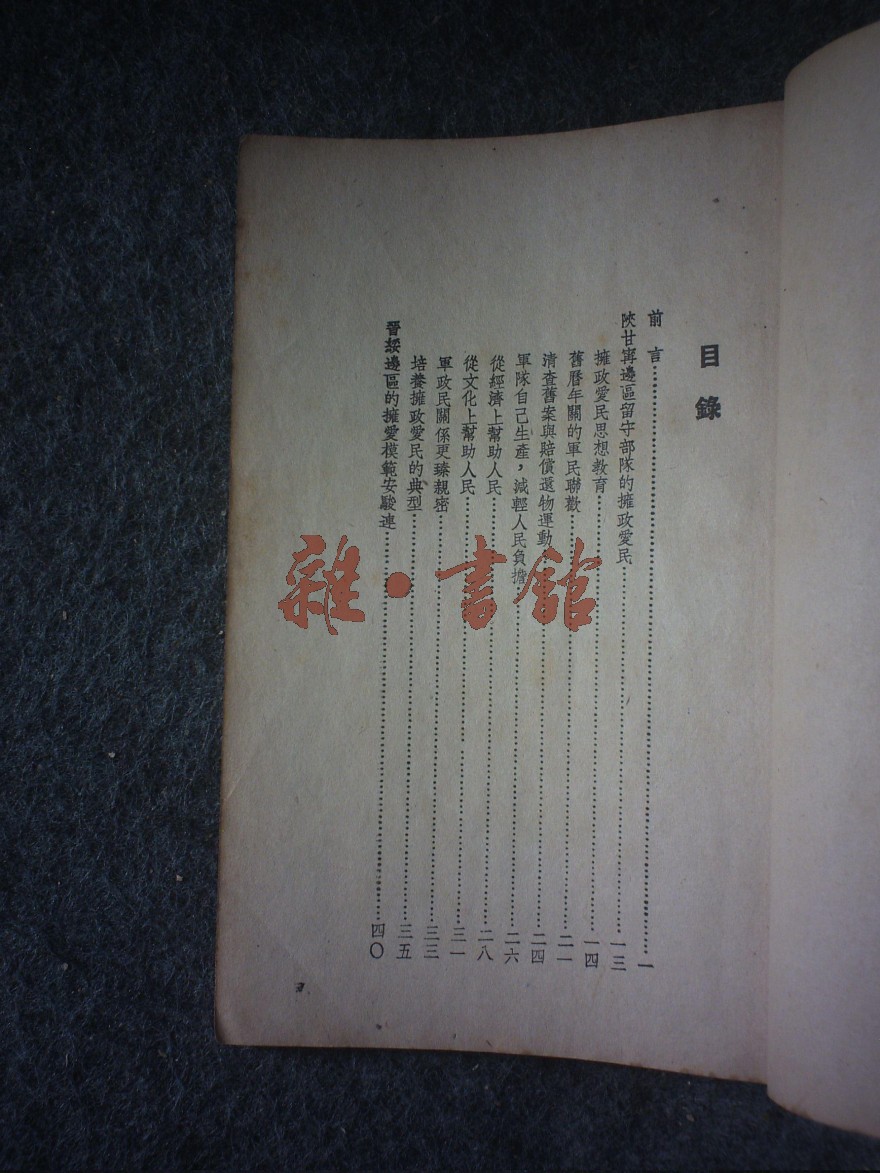 目錄
前言……一
陝甘寧邊區留守部隊的擁政愛民……一三
擁政愛民思想教育……一四
舊曆年關的軍民聯歡……二一
清查舊案與賠償還物運動……二四
軍隊自己生產，減輕人民負擔……二六
從經濟上幫助人民……二八
從文化上幫助人民……三一
軍政民關係更臻親密……三三
培養擁政愛民的典型……三五
晉綏邊區的擁愛模範安駿連……四〇
雜·書館